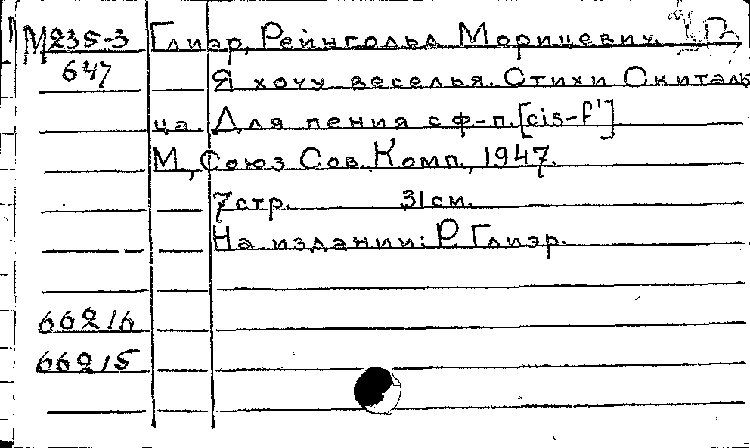 М235-3 Глиэр, Рейнгольд Морицевич.
647 Я хочу веселья. Стихи Скиталь
ца. Для пения с ф-п. [cis-f¹]
М., Союз Сов. Комп., 1947.
7 стр. 31 см.
На издании: Р. Глиэр.
66216
66215